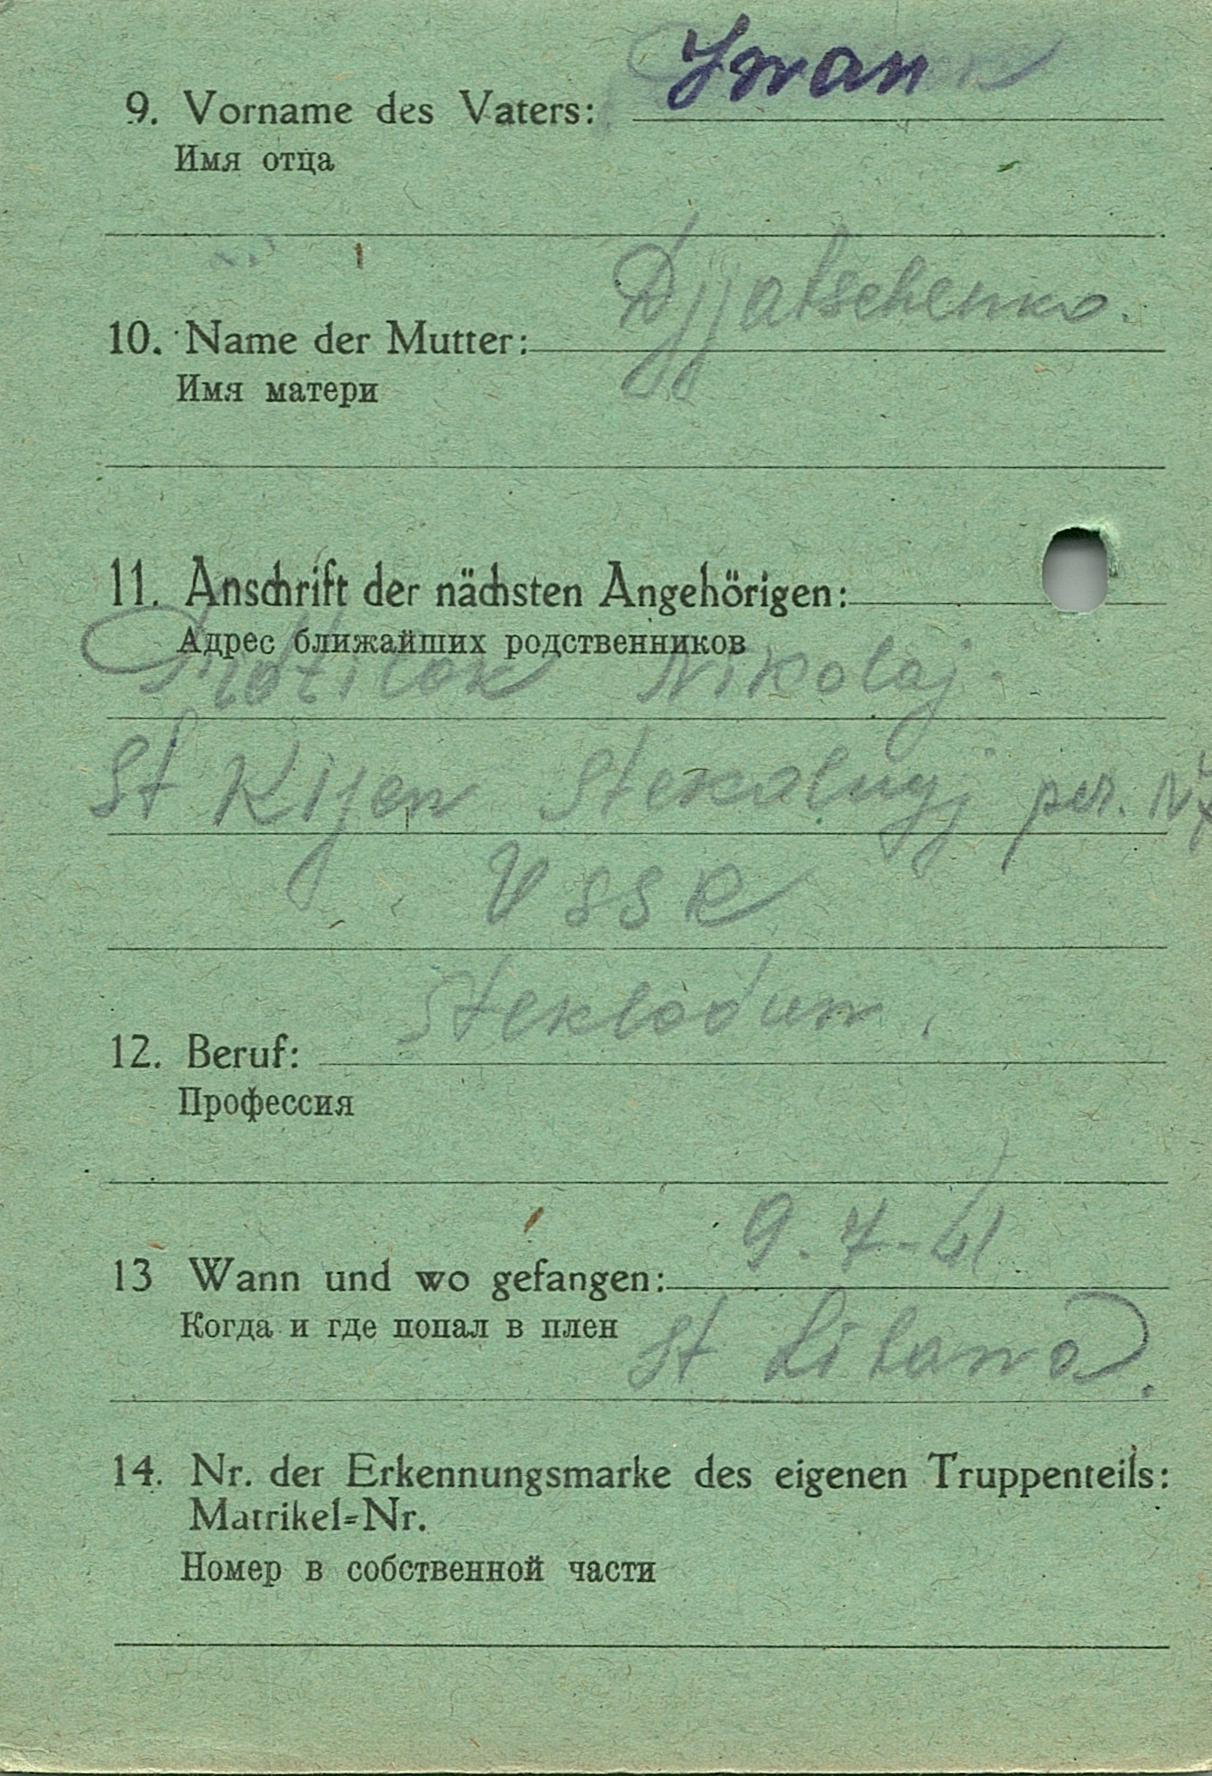 9. Vorname des Vaters: Iwan
Имя отца
10. Name der Mutter: Djjatschenko.
Имя матери
11. Anschrift der nächsten Angehörigen:
Адрес ближайших родственников
Nikolaj.
St Kijew Stekalnyj per. N 7
USSR
12. Beruf: stekloduw.
Профессия
13 Wann und wo gefangen: 9. 7-41
Когда и где попал в плен
St
14. Nr. der Erkennungsmarke des eigenen Truppenteils:
Matrikel=Nr.
Номер в собственной части